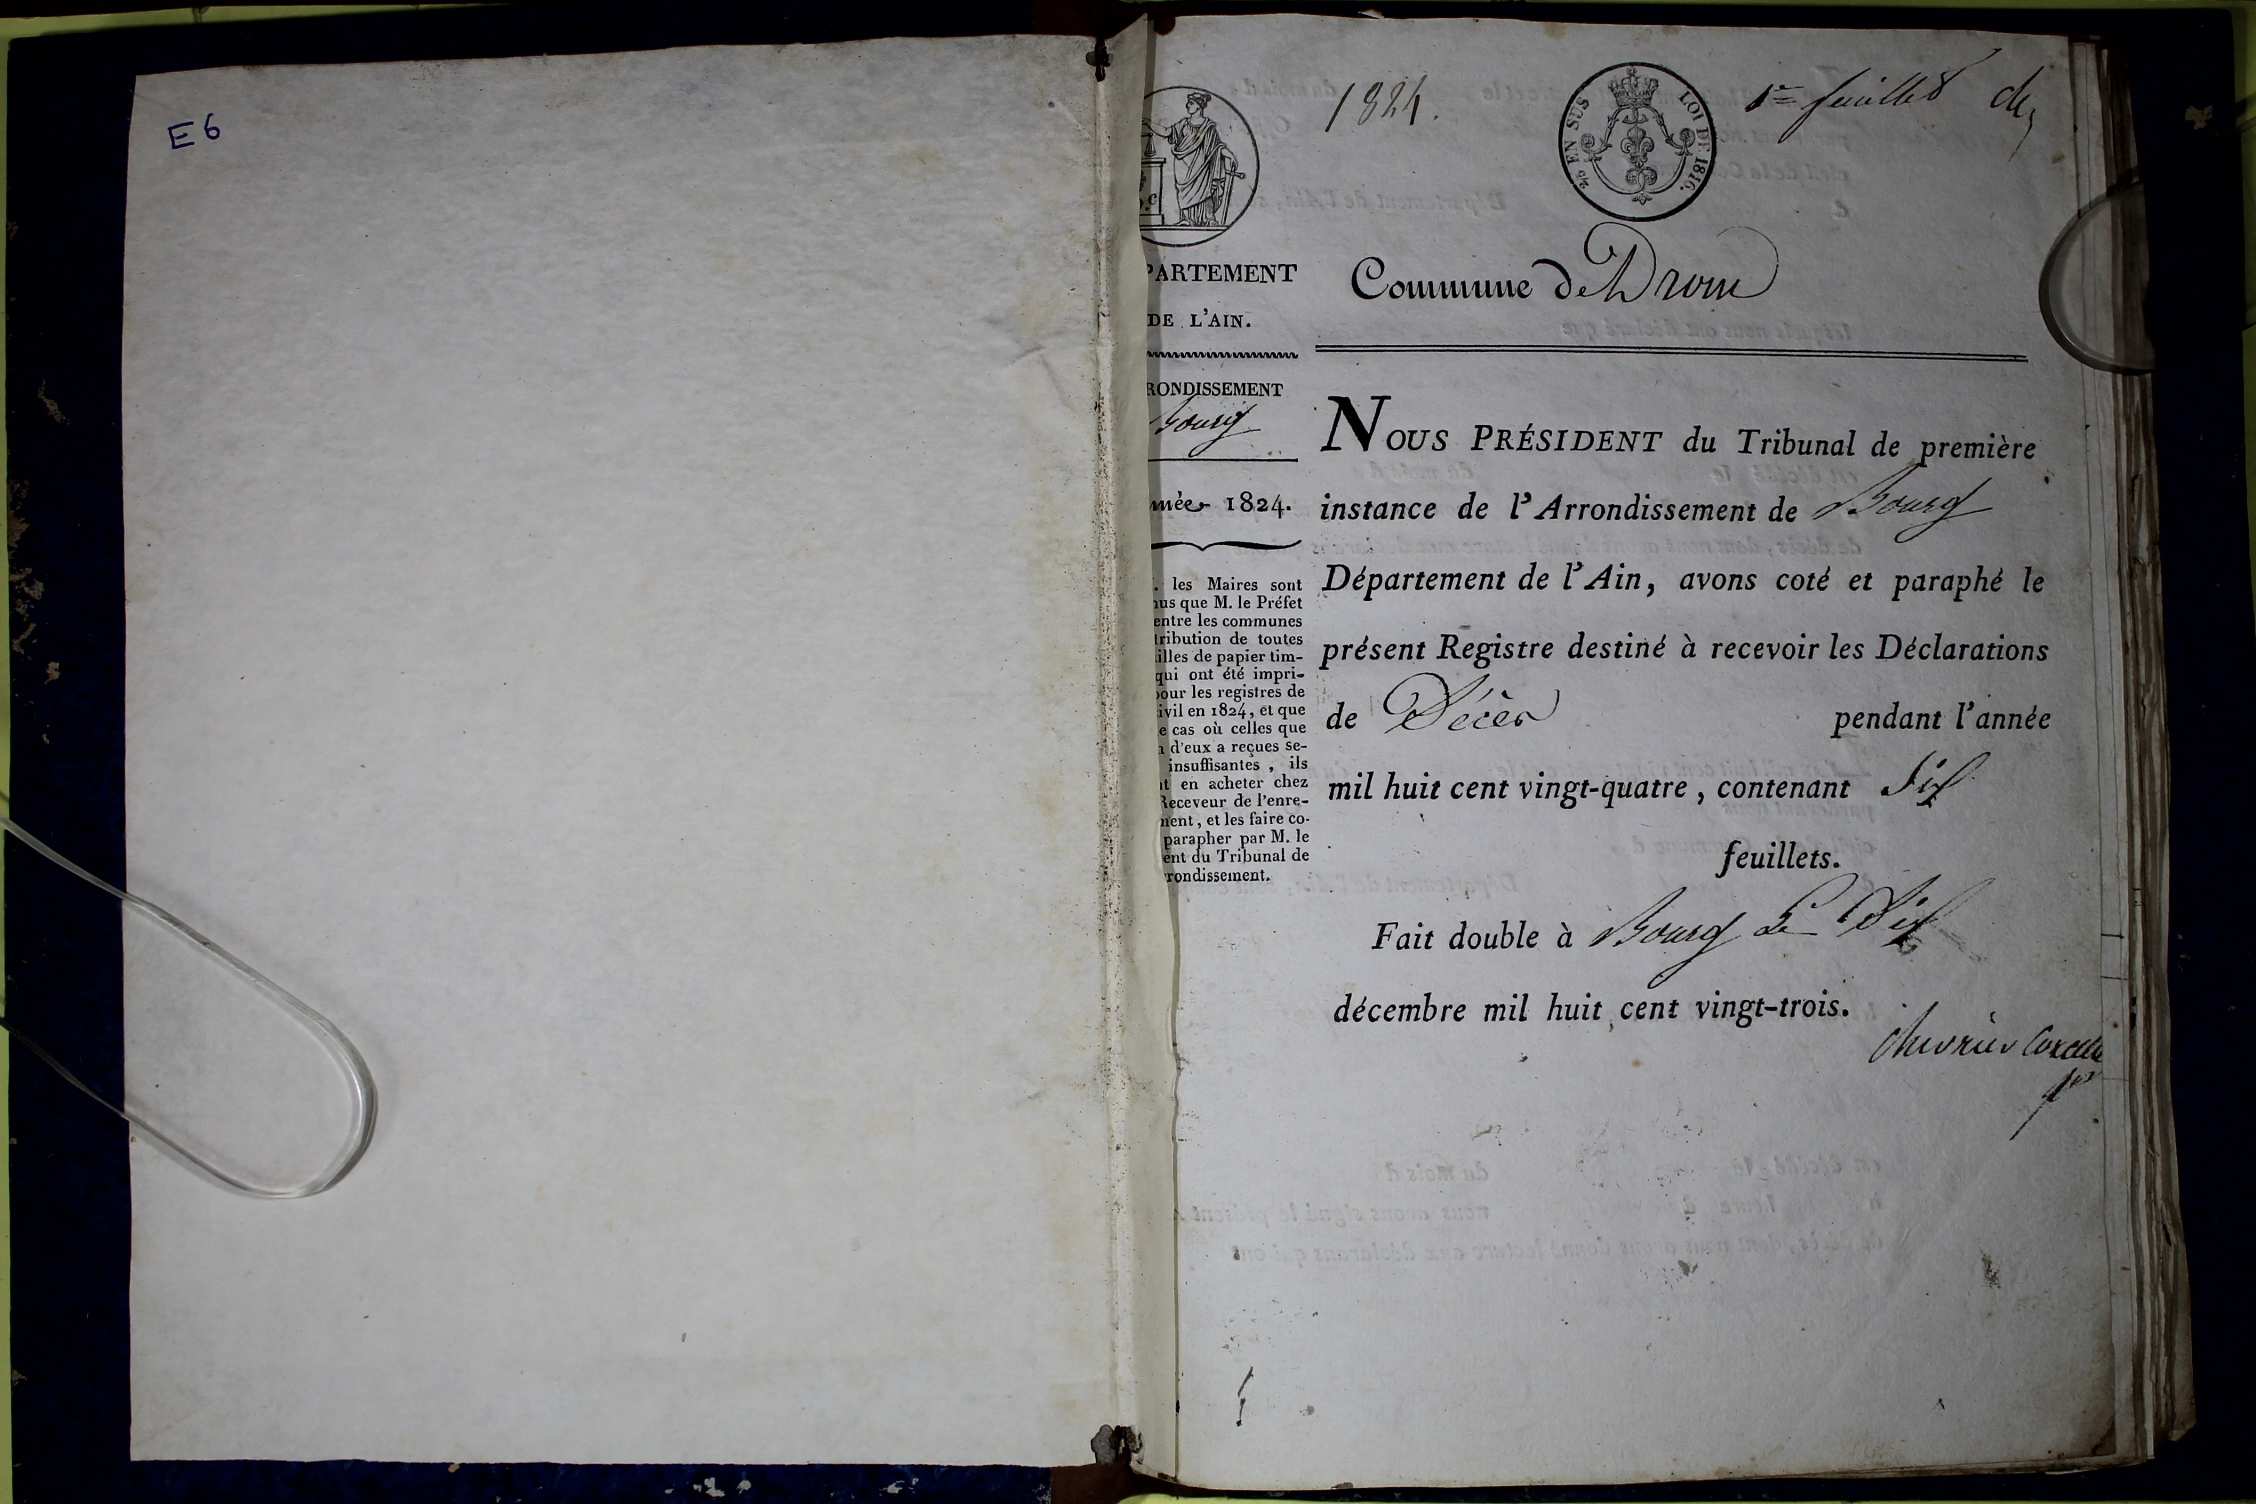 E6
1824.
2/5 EN SUS LOI DE 1816.
1er feuillet
PARTEMENT
DE L'AIN.
RONDISSEMENT
Bourg
nnée 1824.
. les Maires sont
nus que M. le Préfet
entre les communes
tribution de toutes
illes de papier tim-
qui ont été impri-
pour les registres de
ivil en 1824, et que
e cas où celles que
n d'eux a reçues se-
insuffisantes, ils
nt en acheter chez
Receveur de l'enre-
ment, et les faire co-
parapher par M. le
ent du Tribunal de
rondissement.
Commune de Drom
NOUS PRÉSIDENT du Tribunal de première
instance de l'Arrondissement de Bourg
Département de l'Ain, avons coté et paraphé le
présent Registre destiné à recevoir les Déclarations
de Décès pendant l'année
mil huit cent vingt-quatre, contenant Six
feuillets.
Fait double à Bourg Le Dix
décembre mil huit cent vingt-trois.